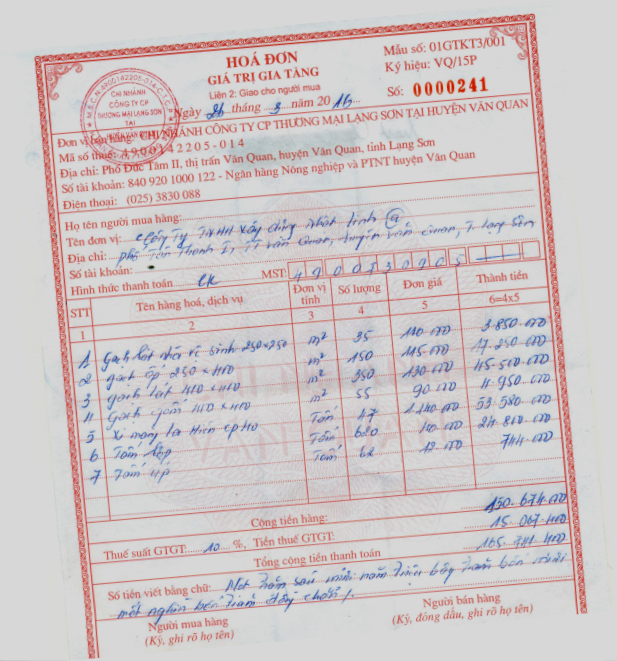 HOÁ ĐƠN
GIÁ TRỊ GIA TĂNG
Liên 2: Giao cho người mua
Ngày 26 tháng 3 năm 2016
Mẫu số: 01GTKT3/001
Ký hiệu: VQ/15P
Số: 0000241
M.S.C.N: 4900142205-014-C.T.C.P
CHI NHÁNH
CÔNG TY CP
THƯƠNG MẠI LẠNG SƠN
TẠI
HUYỆN VĂN QUAN
Đơn vị bán hàng: CHI NHÁNH CÔNG TY CP THƯƠNG MẠI LẠNG SƠN TẠI HUYỆN VĂN QUAN
Mã số thuế: 4900142205-014
Địa chỉ: Phố Đức Tâm II, thị trấn Văn Quan, huyện Văn Quan, tỉnh Lạng Sơn
Số tài khoản: 840 920 1000 122 - Ngân hàng Nông nghiệp và PTNT huyện Văn Quan
Điện thoại: (025) 3830 088
Họ tên người mua hàng:
Tên đơn vị: Công Ty TNHH xây dựng Nhật Linh
Địa chỉ: phố Tân Thanh I, TT Văn Quan, huyện Văn Quan, T. Lạng Sơn
Số tài khoản:
Hình thức thanh toán CK MST: 4900530905
STT Tên hàng hoá, dịch vụ Đơn vị tính Số lượng Đơn giá Thành tiền
1 2 3 4 5 6=4x5
1 gạch lát nhà vệ sinh 250x250 m² 35 110.000 3.850.000
2 gạch ốp 250x400 m² 150 115.000 17.250.000
3 gạch lát 400x400 m² 350 130.000 45.500.000
4 Gạch gốm 400x400 m² 55 90.000 4.950.000
5 Xi măng La Hiên CP40 Tấn 47 1.140.000 53.580.000
6 Tấm lợp Tấm 620 40.000 24.800.000
7 Tấm úp Tấm 62 12.000 744.000
Cộng tiền hàng: 150.674.000
Thuế suất GTGT: 10 %, Tiền thuế GTGT: 15.067.400
Tổng cộng tiền thanh toán 165.741.400
Số tiền viết bằng chữ: Một trăm sáu mươi năm triệu bảy trăm bốn mươi
một nghìn bốn trăm đồng chẵn /.
Người mua hàng Người bán hàng
(Ký, ghi rõ họ tên) (Ký, đóng dấu, ghi rõ họ tên)